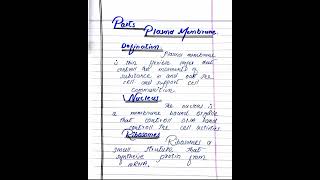 Parts
Plasma Membrane
Defination
Plasma membrane
is thin flexible layer that
control the moments of
substance in and out the
cell and support cell
communition.
Nucleus
The nucleus is
a membrane bound organelle
that controll DNA and
controll the cell activities
Ribosomes
Ribosomes a
small structure that
synthesize protein from
mRNA.